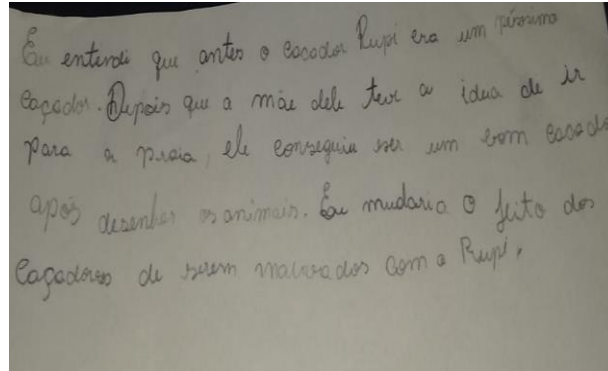 Eu entendi que antes o caçador Rupi era um péssimo
caçador. Depois que a mãe dele teve a ideia de ir
para a praia, ele conseguiu ser um bom caçado
após desenhar os animais. Eu mudaria o jeito dos
caçadores de serem malvados com o Rupi.